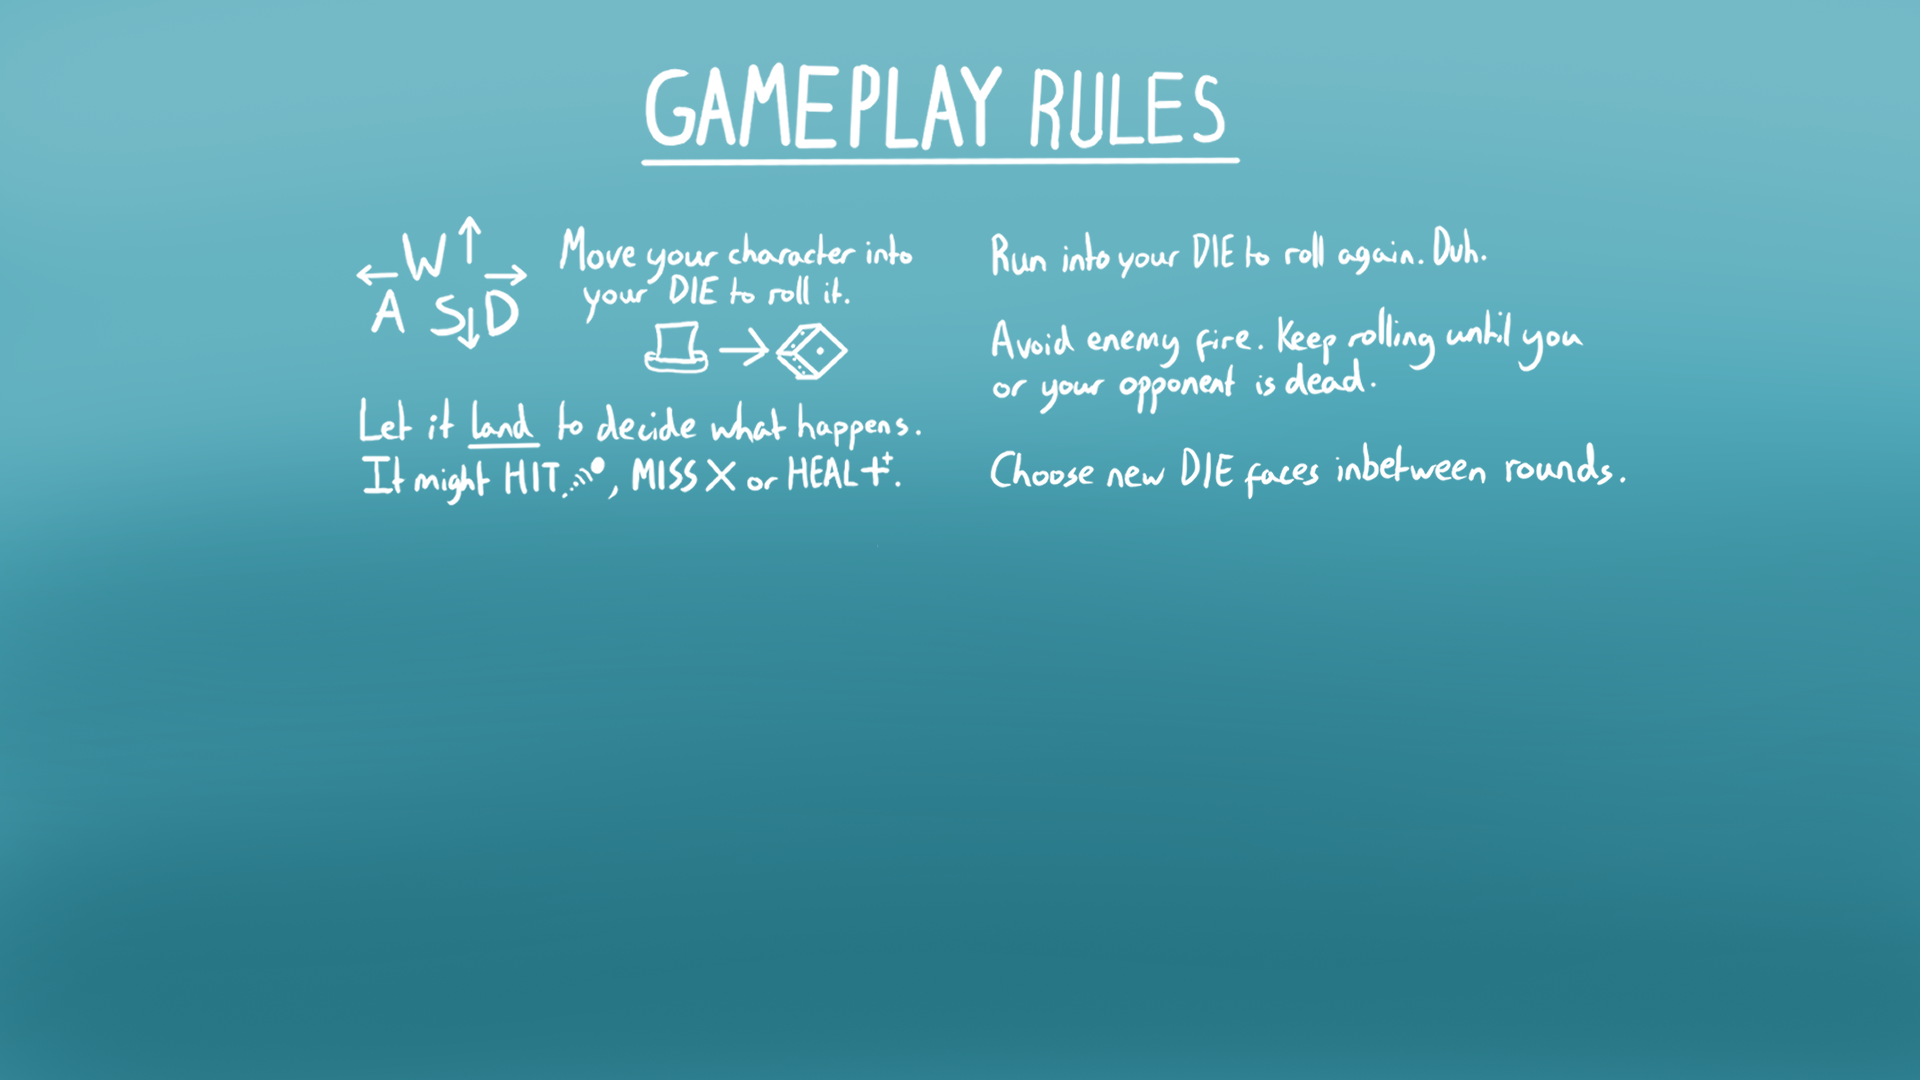 GAMEPLAY RULES
W
A S D
Move your character into
your DIE to roll it.
Let it land to decide what happens.
It might HIT, MISS X or HEAL.
Run into your DIE to roll again. Duh.
Avoid enemy fire. Keep rolling until you
or your opponent is dead.
Choose new DIE faces inbetween rounds.